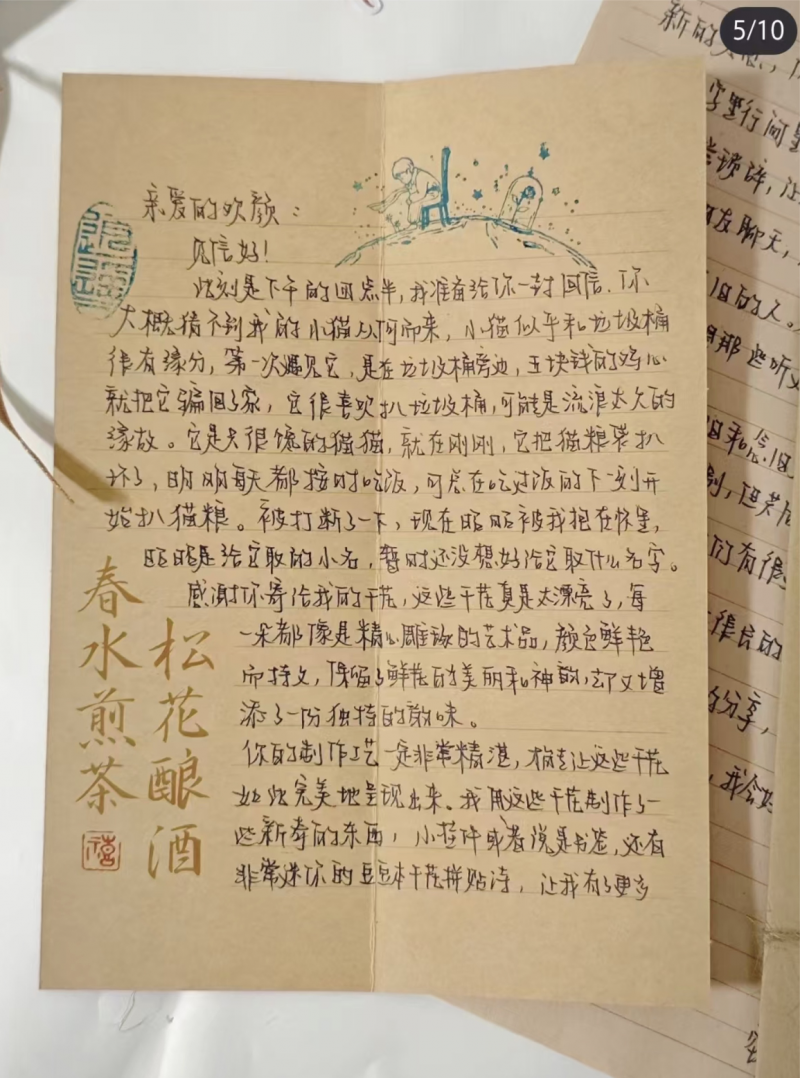 5/10
亲爱的欢颜：
见信好！
此刻是下午的四点半，我准备给你一封回信．你
大概猜不到我的小猫从何而来，小猫似乎和垃圾桶
很有缘分，第一次遇见它，是在垃圾桶旁边，五块钱的鸡心
就把它骗回了家，它很喜欢扒垃圾桶，可能是流浪太久的
缘故。它是只很馋的猫猫，就在刚刚，它把猫粮袋扒
坏了，明明每天都按时吃饭，可总在吃过饭的下一刻开
始扒猫粮。被打断了一下，现在昭昭被我抱在怀里，
昭昭是给它取的小名，暂时还没想好给它取什么名字。
感谢你寄给我的干花，这些干花真是太漂亮了，每
一朵都像是精心雕琢的艺术品，颜色鲜艳
而持久，保留了鲜花的美丽和神韵，却又增
添了一份独特的韵味。
你的制作工艺一定非常精湛，才能让这些干花
如此完美地呈现出来。我用这些干花制作了一
些新奇的东西，小挂件或者说是书签，还有
非常迷你的豆豆本干花拼贴诗，让我有了更多
春水煎茶
松花酿酒
新的
字里行间里
聊天，
旧的人。
那些听
的有很
很长的
的分享，
，我会好